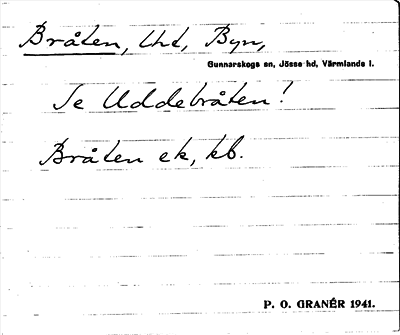 Bråten, Utd, Byn,
Gunnarskogs sn, Jösse hd, Värmlands l.
Se Uddebråten!
Bråten ek, kb.
P. O. GRANÉR 1941.